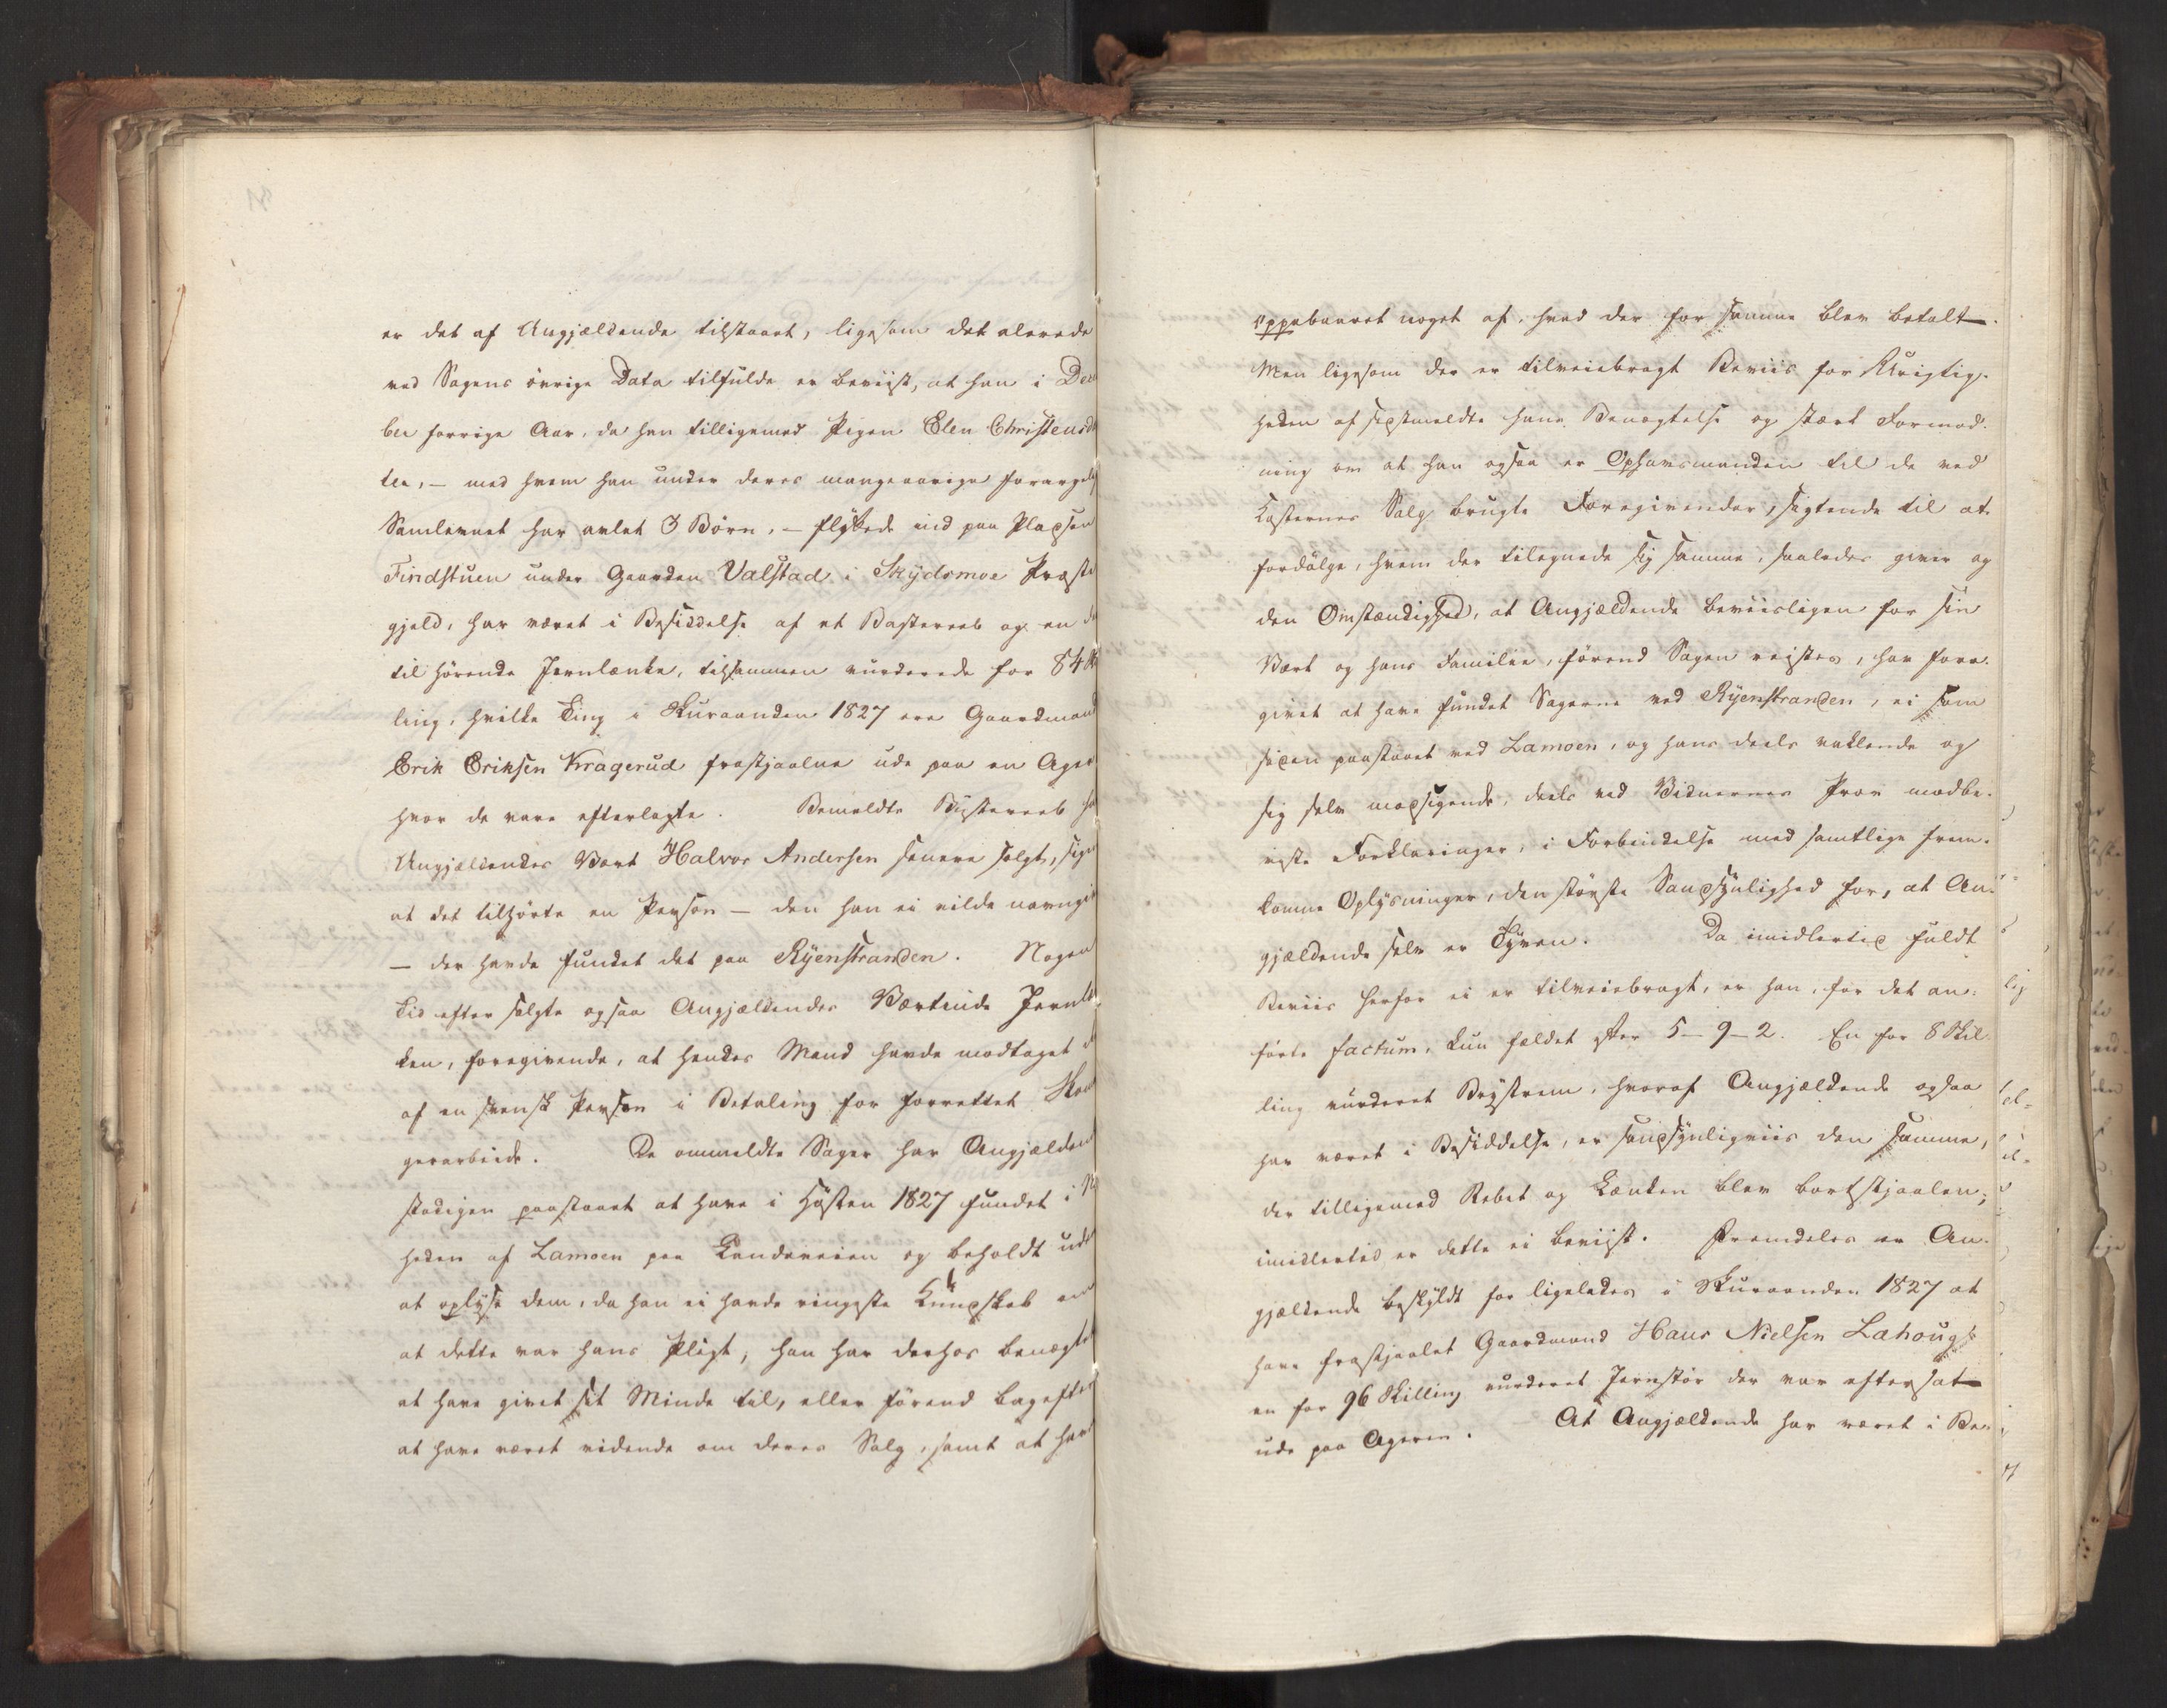 er det af Angjældende tilstaaet, ligesom det allerede
ved Sagens øvrige Data tilfulde er beviist, at han i Dec
ber forrige Aar, da han tilligemed Pigen Elen Christensd
ter, – med hvem han under deres mangeaarige forargel
Samlevnet har avlet 3 Børn, – flyttede ind paa Pladsen
Findstuen under Gaarden Valstad i Skydsmoe Præste
gjeld, har været i Besiddelse af et Bastereeb og en d
til hørende Jernlænke, tilsammen vurderede for 84 sk
ling, hvilke Ting i Skuraanden 1827 ere Gaardmand
Erik Eriksen Kragerud frastjaalne ude paa en Ager
hvor de vare efterlagte. Bemeldte Bastereeb ha
Angjældendes Vært Halvor Andersen senere solgt, sige
at det tilhørte en Person – den han ei vilde navngi
– der havde fundet det paa Ryenstranden. Nogen
Tid efter solgte ogsaa Angjældendes Værtinde Jernlæ
ken, foregivende, at hendes Mand havde modtaget d
af en svensk Person i Betaling for forrettet Skom
gerarbeide. De ommeldte Sager har Angjælden
stadigen paastaaet at have i Høsten 1827 fundet i N
heden af Lamoen paa Landeveien og beholdt ude
at oplyse dem, da han ei havde ringeste Kundskab om
at dette var hans Pligt, han har derhos benægte
at have givet sit Minde til, eller førend bagefter
at have været vidende om deres Salg, samt at have
oppebaaret noget af, hvad der for samme blev betalt.
Men ligesom der er tilveiebragt Beviis for Urigtig-
heden af sidstmeldte hans Benægtelse og stærk Formod-
ning om at han ogsaa er Ophavsmanden til de ved
Kosternes Salg brugte Foregivender, sigtende til at
fordølge, hvem der tilegnede sig samme, saaledes giver og
den Omstændighed, at Angjældende beviisligen for sin
Vært og hans Familie, førend Sagen reistes, har fore-
givet at have fundet Sagerne ved Ryenstranden, ei som
siden paastaaet ved Lamoen, og hans deels vaklende og
sig selv modsigende, deels ved Vidnernes Prov modbe-
viste Forklaringer, i Forbindelse med samtlige frem-
komne Oplysninger, den største Sandsynlighed for, at An-
gjældende selv er Tyven. Da imidlertid fuldt
Beviis herfor ei er tilveiebragt, er han, for det an-
førte factum, kun fældet efter 5–9–2. En for 8 Skil
ling vurderet Bryström, hvoraf Angjældende ogsaa
har været i Besiddelse, er sandsynligviis den samme,
der tilligemed Rebet og Lænken blev bortstjaalen;
imidlertid er dette ei beviist. Fremdeles er An-
gjældende beskyldt for ligeledes i Skuraanden 1827 at
have frastjaalet Gaardmand Hans Nielsen Lahoug
en for 96 Skilling vurderet Jernstør der var eftersat
ude paa Ageren. At Angjældende har været i Be-